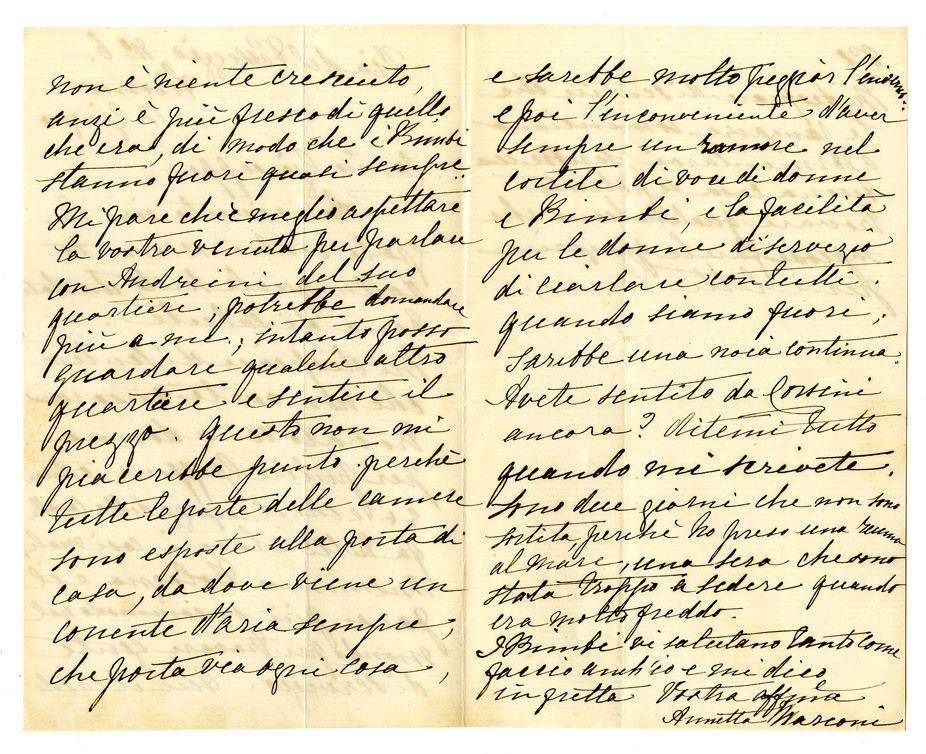 non è niente cresciuto,
anzi è più fresco di quello
che era, di modo che i Bimbi
stanno fuori quasi sempre.
Mi pare che è meglio aspettare
la vostra venuta per parlare
con Andreini del suo
quartiere, potrebbe domandare
più a me; intanto posso
guardare qualche altro
quartiere e sentire il
prezzo. Questo non mi
piacerebbe punto perchè
tutte le porte delle camere
sono esposte alla porta di
casa, da dove viene un
corrente d'aria sempre,
che porta via ogni cosa,
e sarebbe molto peggio per l'inverno.
e poi l'inconveniente d'aver
sempre un rumore nel
cortile di voce di donne
e Bimbi, e la facilità
per le donne di servizio
di ciarlare con tutti
quando siamo fuori,
sarebbe una noia continua.
Avete sentito da Corsini
ancora? Ditemi tutto
quando mi scrivete.
Sono due giorni che non sono
sortita, perchè ho preso una
al mare, una sera che sono
stata troppo a sedere quando
era molto freddo.
I Bimbi vi salutano tanto come
faccio anch'io e mi dico
in fretta Vostra affma
Annetta Marconi